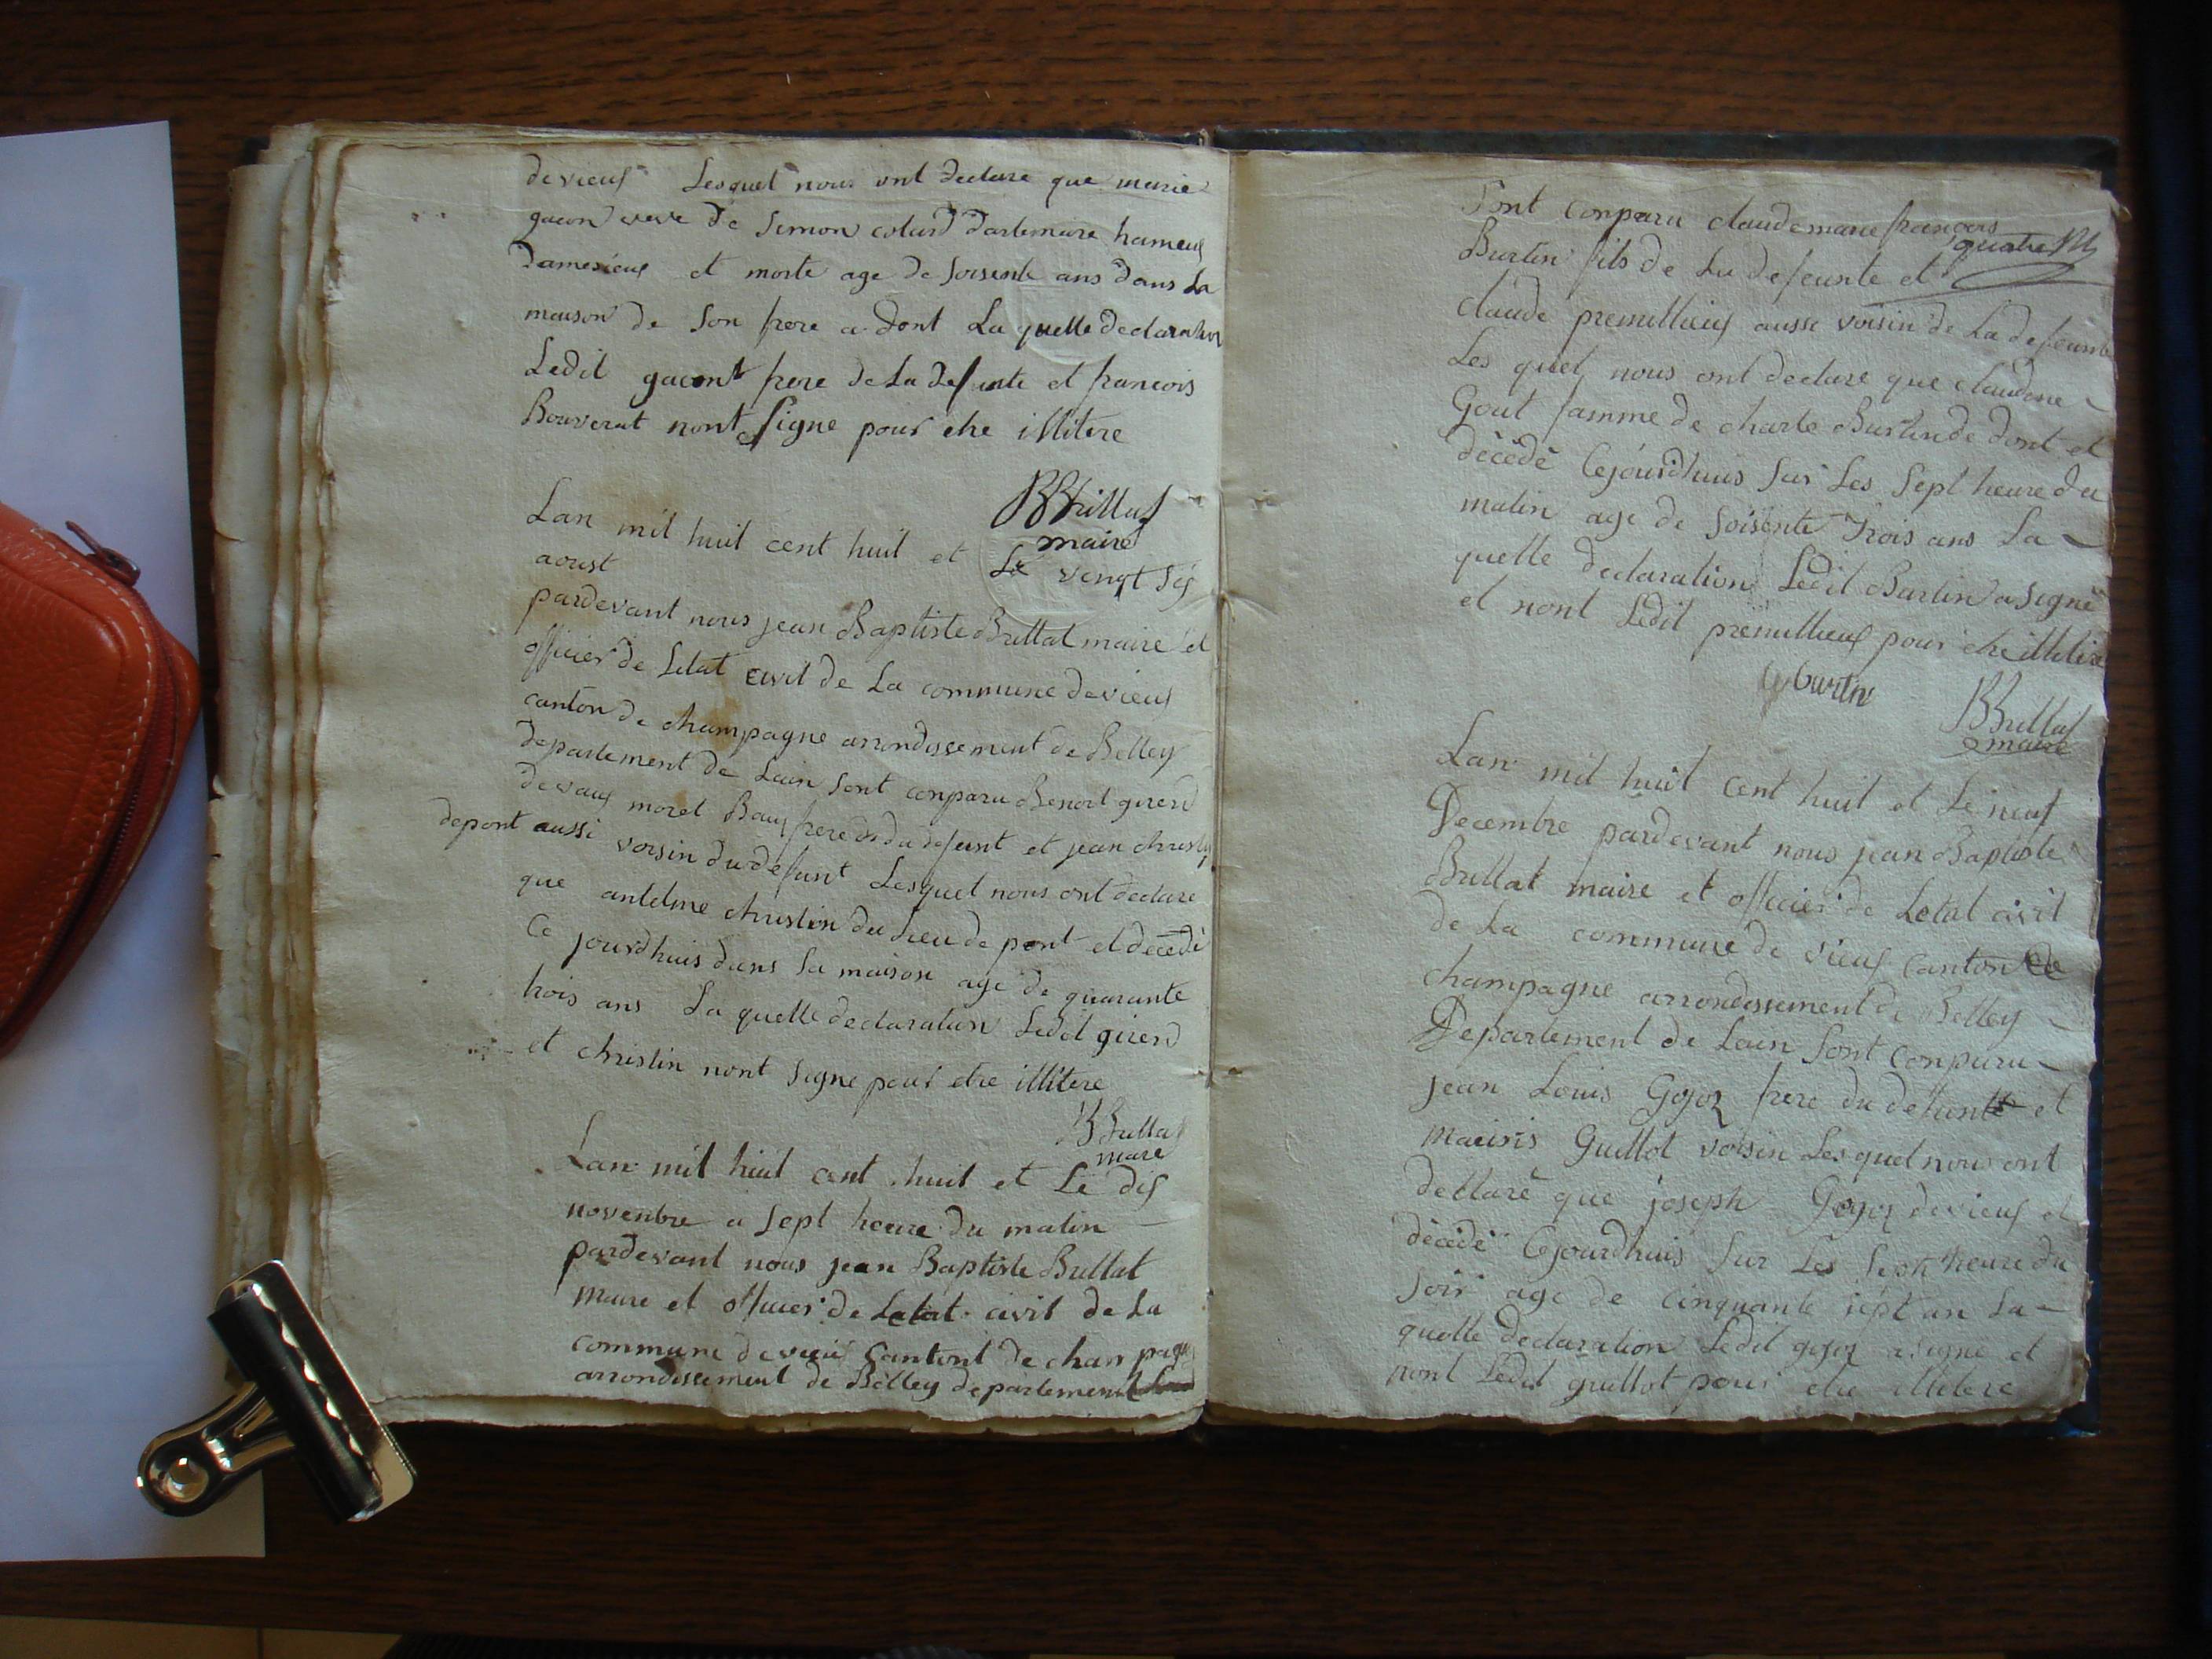 devieuf Lesquel nous ont declare que marie
gacon veve de Simon colard dartemare hameuf
damesieuf et morte age de soisente ans dans La
maison de Son frere a dont La quelle declaration
Ledit gacont frere de La defunte et francois
Bouverat nont Signe pour etre illitere
BBrillat
maire
Lan mil huit cent huit et Le vengt sis
aoust
pardevant nous jean Baptiste Brillat maire et
officier de Letat civil de La commune devieuf
canton de champagne arrondissement de Belley
departement de Lain Sont conparu Benoit girerd
devauf moret Bauf frere du defeunt et jean christin
depont aussi voisin du defunt Lesquel nous ont declare
que antelme christin du Lieu de pont et decede
Ce jourdhuis dans Sa maison age de quarante
trois ans La quelle declaration Ledit girerd
et christin nont Signe pour etre illitere
BBrillat
maire
Lan mil huit cent huit et Le dis
novenbre a Sept heure du matin
pardevant nous jean Baptiste Brillat
maire et officier de Letat civil de La
commune devieuf Cantont de chanpagne
arrondissement de Belley departement
Sont conparu claudemarie francois
quatre
Burtin fils de La defeunte et
claude premillieuf ausse voisin de La defeunte
Les quel nous ont declare que claudine
Gout famme de charle Burtin de dont et
décédé Cejourdhuis Sur Les Sept heure du
matin age de Soisente trois ans La
quelle declaration Ledit Burtin a Signe
et nont Ledit premillieuf pour etre illitere
burtin
BBrillat
maire
Lan mil huit cent huit et Le neuf
Decembre pardevant nous jean Baptiste
Brillat maire et officier de Letat civil
de La commune de vieuf Canton de
champagne arrondissement de Belley
Departement de Lain Sont Conparu
jean Louis Gojoz frere du defunt et
Mauris Guillot voisin Lesquel nous ont
declaré que joseph Gojoz devieuf et
décédé Cejourdhuis Sur Les Sept heure du
Soir age de cinquante sept an La
quelle declaration Ledit gojoz a signe et
nont Ledit guillot pour etre illitere